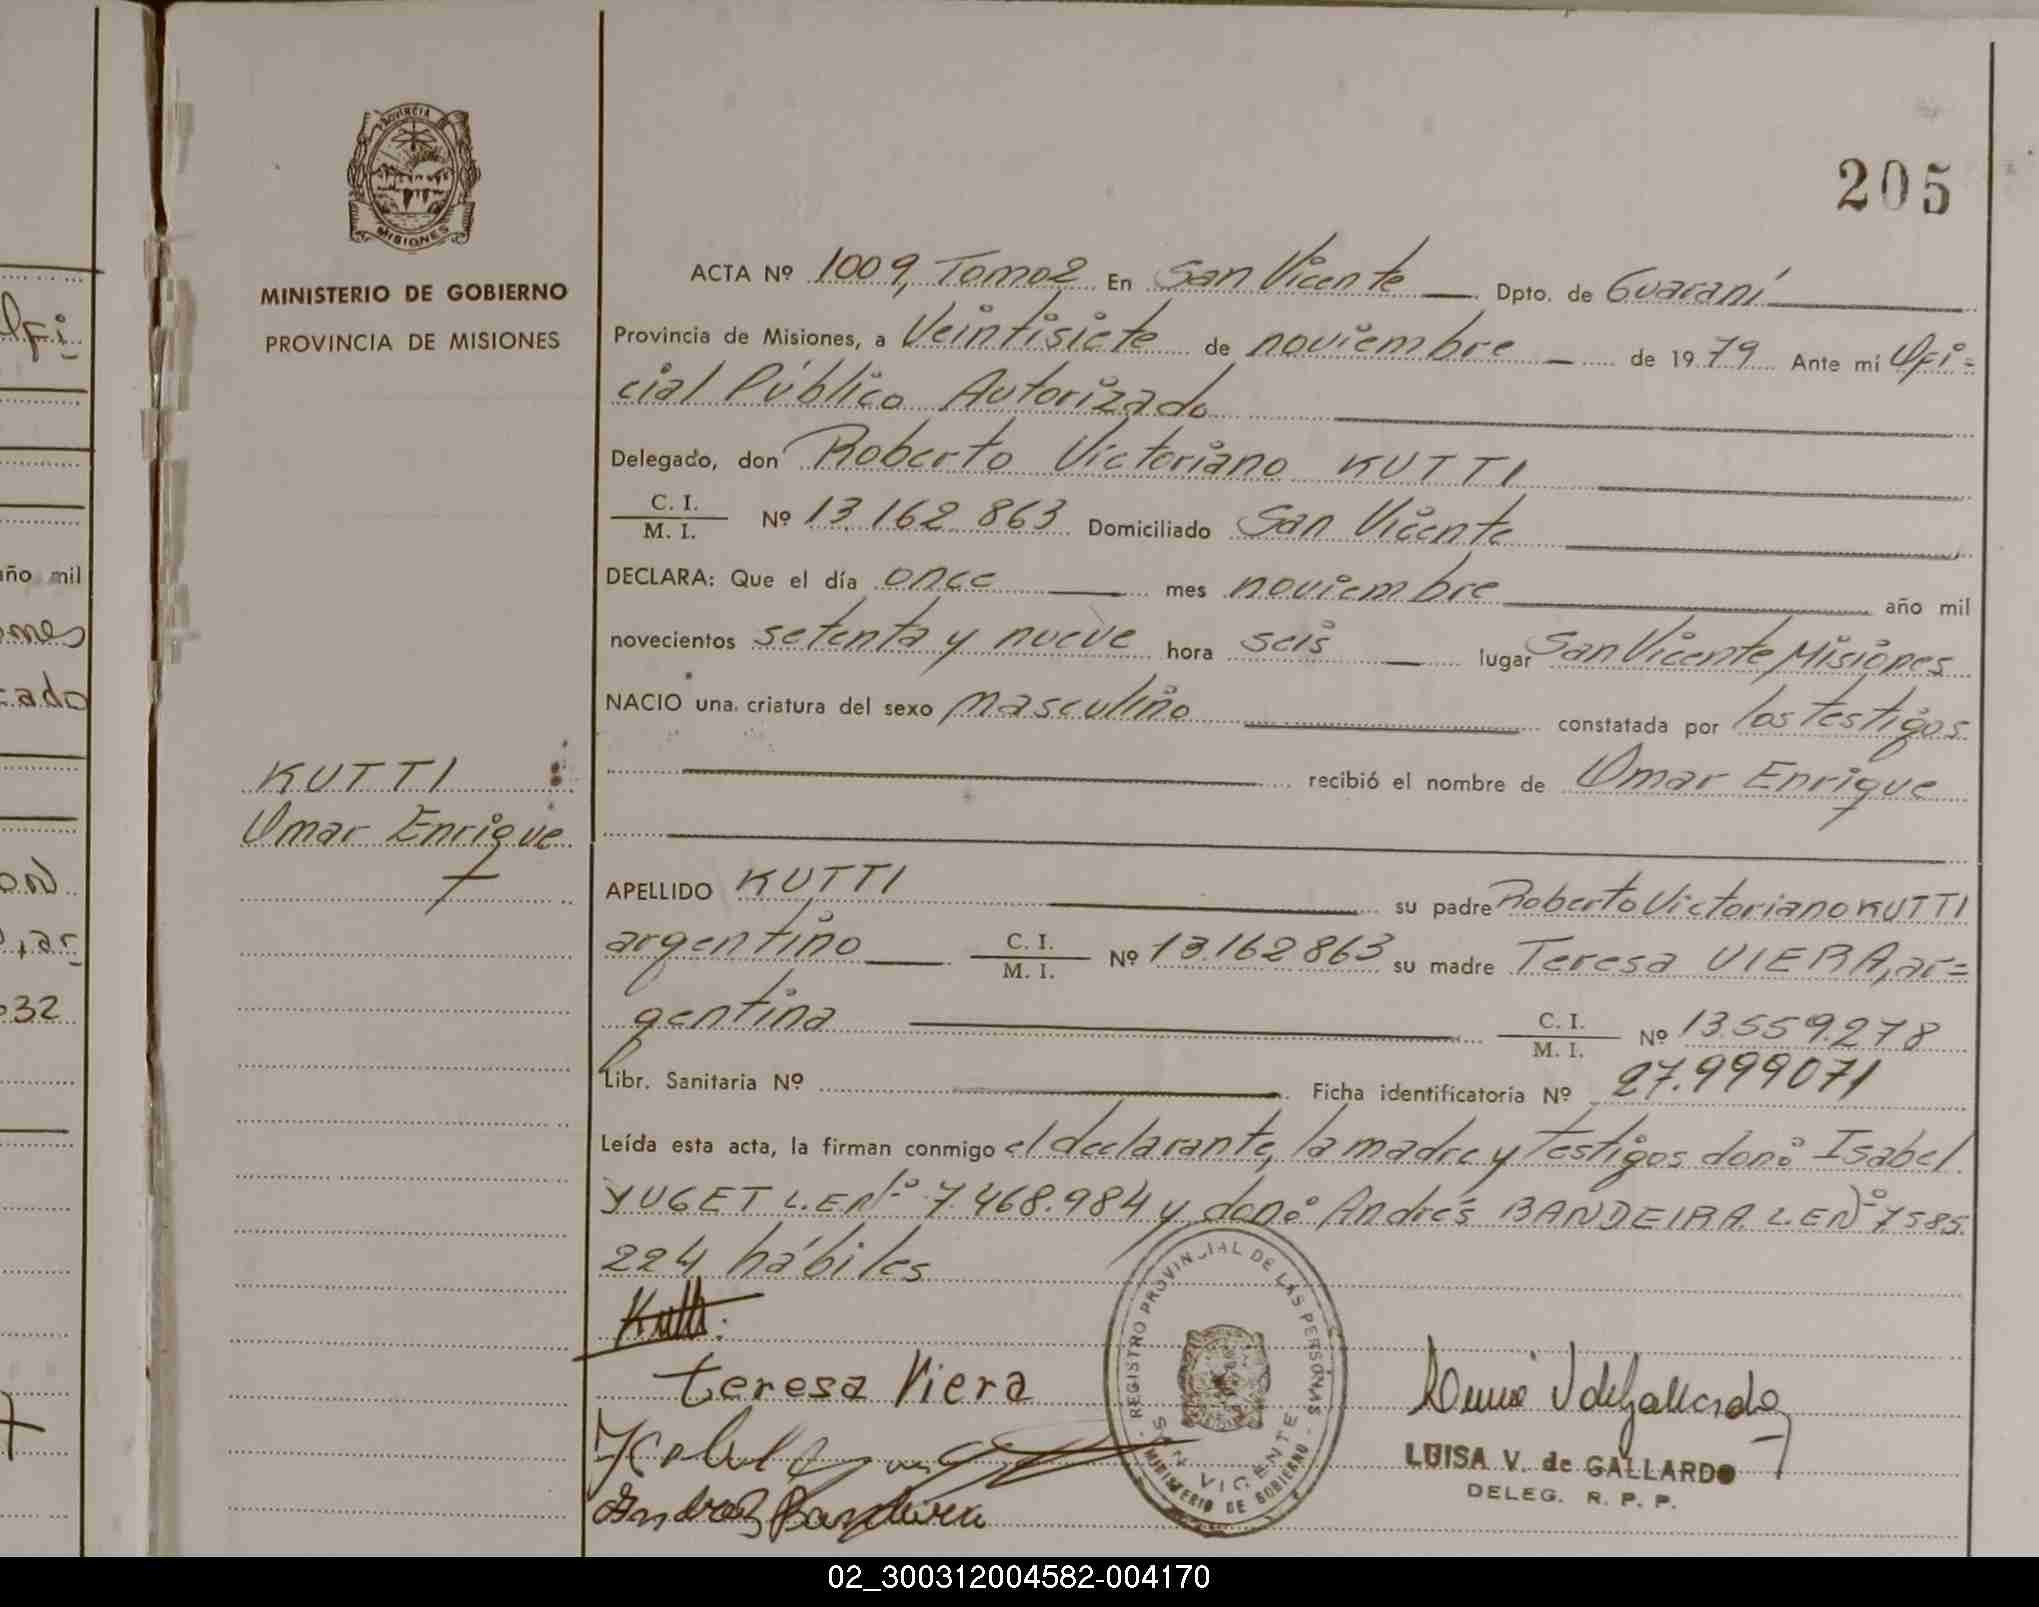 205
PROVINCIA D
MISIONES
MINISTERIO DE GOBIERNO
PROVINCIA DE MISIONES
ACTA Nº 1009, Tomo 2 En San Vicente Dpto. de Guaraní
Provincia de Misiones, a Veintisiete de noviembre de 1979 Ante mí Ofi=
cial Público Autorizado
Delegado, don Roberto Victoriano KUTTI
C. I.
M. I. Nº 13.162.863 Domiciliado San Vicente
DECLARA: Que el día once mes noviembre año mil
novecientos setenta y nueve hora seis lugar San Vicente, Misiones
NACIO una criatura del sexo masculino constatada por los testigos
recibió el nombre de Omar Enrique
KUTTI
Omar Enrique
APELLIDO KUTTI su padre Roberto Victoriano KUTTI
argentino C. I.
M. I. Nº 13.162.863 su madre Teresa VIERA, ar=
gentina C. I.
M. I. Nº 13.559.278
Libr. Sanitaria Nº Ficha identificatoria Nº 27.999071
Leída esta acta, la firman conmigo el declarante, la madre y testigos don: Isabel
YUGET L.E.Nº 7.468.984 y don: Andrés BANDEIRA L.E.Nº 7.585.
224 hábiles
Kutti
teresa Viera
Andres Bandeira
REGISTRO PROVINCIAL DE LAS PERSONAS
SAN VICENTE
MINISTERIO DE GOBIERNO
LUISA V. de GALLARDO
DELEG. R. P. P.
ofi
año mil
ado
32
02_300312004582-004170